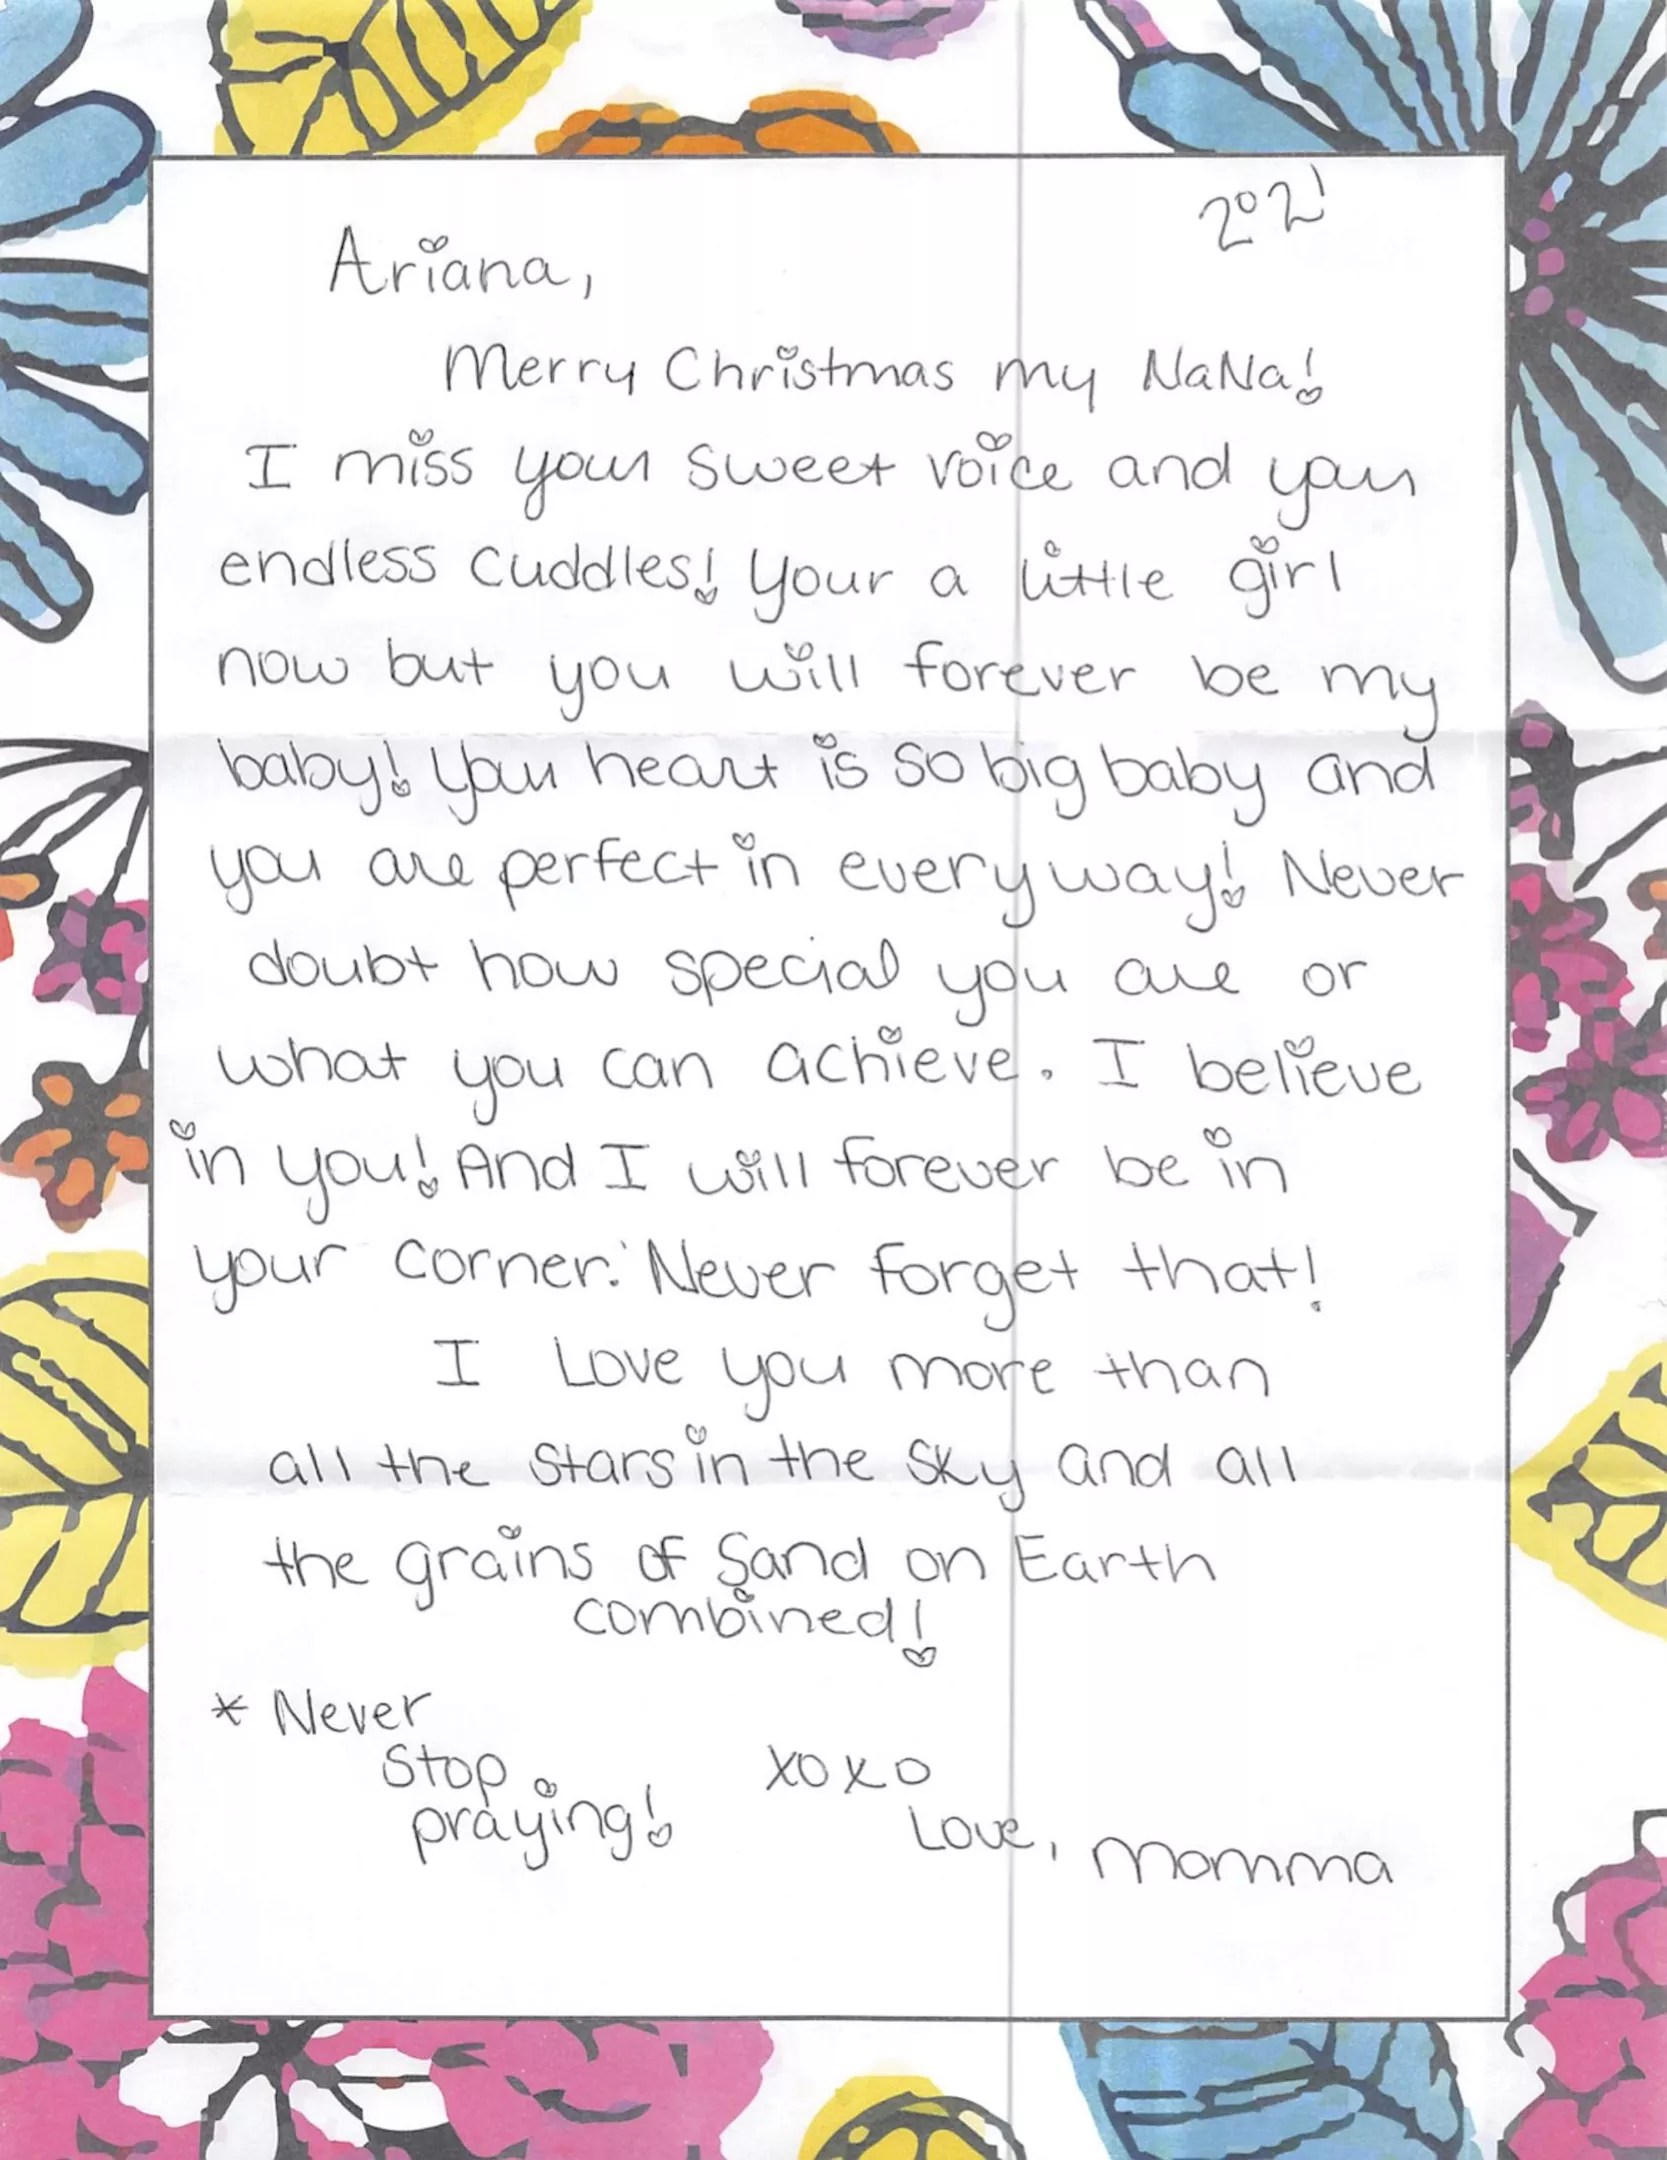 2021
Ariana,
Merry Christmas my NaNa!
I miss your sweet voice and your
endless cuddles! Your a little girl
now but you will forever be my
baby! Your heart is so big baby and
you are perfect in every way! Never
doubt how special you are or
what you can achieve. I believe
in you! And I will forever be in
your corner. Never forget that!
I Love you more than
all the stars in the sky and all
the grains of sand on Earth
combined!
* Never
stop
praying!
XOXO
Love, Momma